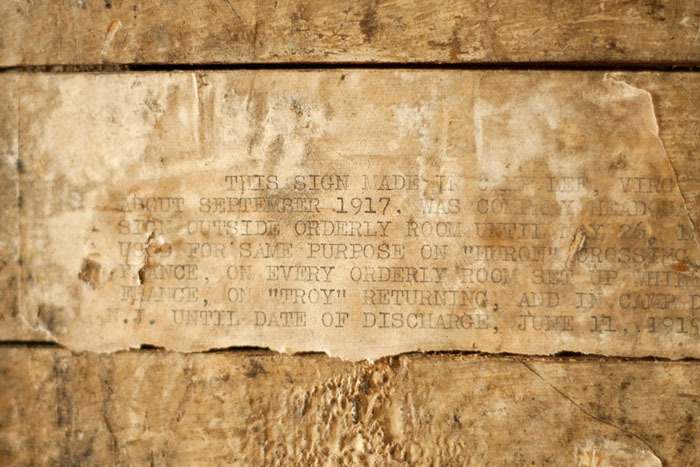 THIS SIGN MADE IN LEE,
ABOUT SEPTEMBER 1917, WAS COMPANY
SIGN OUTSIDE ORDERLY ROOM UNTIL MAY 26,
USED FOR SAME PURPOSE ON "HURON" CROSSING
FRANCE, ON EVERY ORDERLY ROOM SET UP
FRANCE, ON "TROY" RETURNING, AND IN CAMP
N.J. UNTIL DATE OF DISCHARGE, JUNE 11, 191